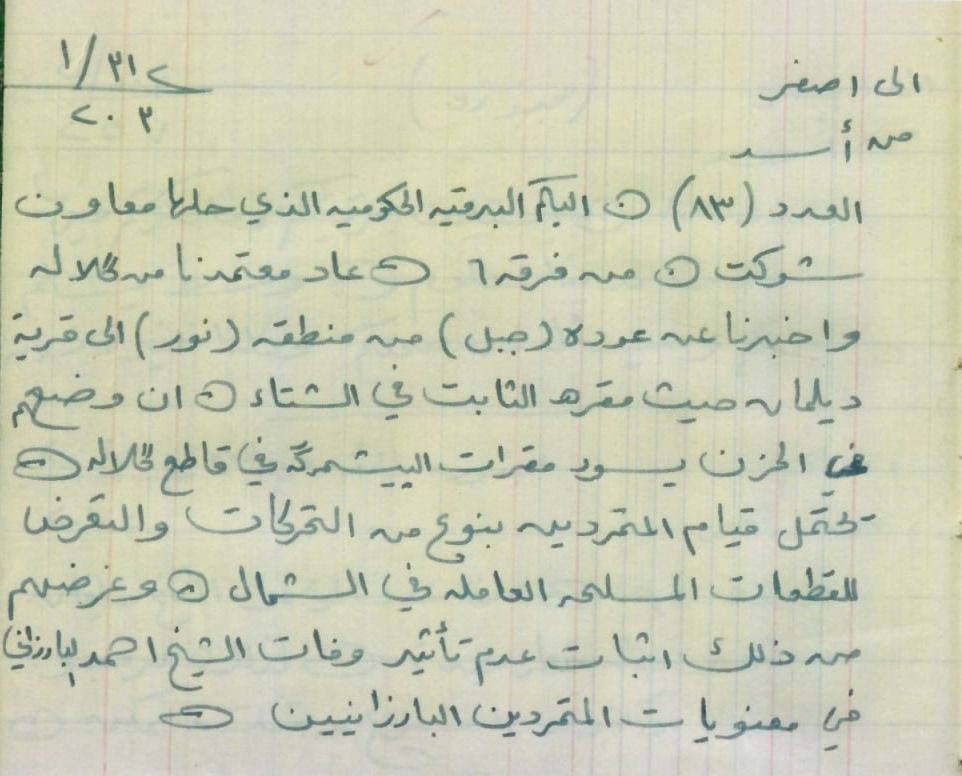 ١/٣١٢
٢٠٣
الى اصفر
من أسد
العدد (٨٣) ن اليكم البرقيه الحكوميه الذي حلها معاون
شوكت ن من فرقه ٦ ن عاد معتمدنا من گلاله
واخبرنا عن عوده (جبل) من منطقه (نور) الى قرية
ديلمان حيث مقره الثابت في الشتاء ن ان وضعهم
الحزن يسود مقرات البيشمرگه في قاطع گلاله ن
تحتمل قيام المتمردين بنوع من التحركات والتعرض
للقطعات المسلحه العامله في الشمال ن وغرضهم
من ذلك اثبات عدم تأثير وفات الشيخ احمد البارزاني
في معنويات المتمردين البارزانيين ن